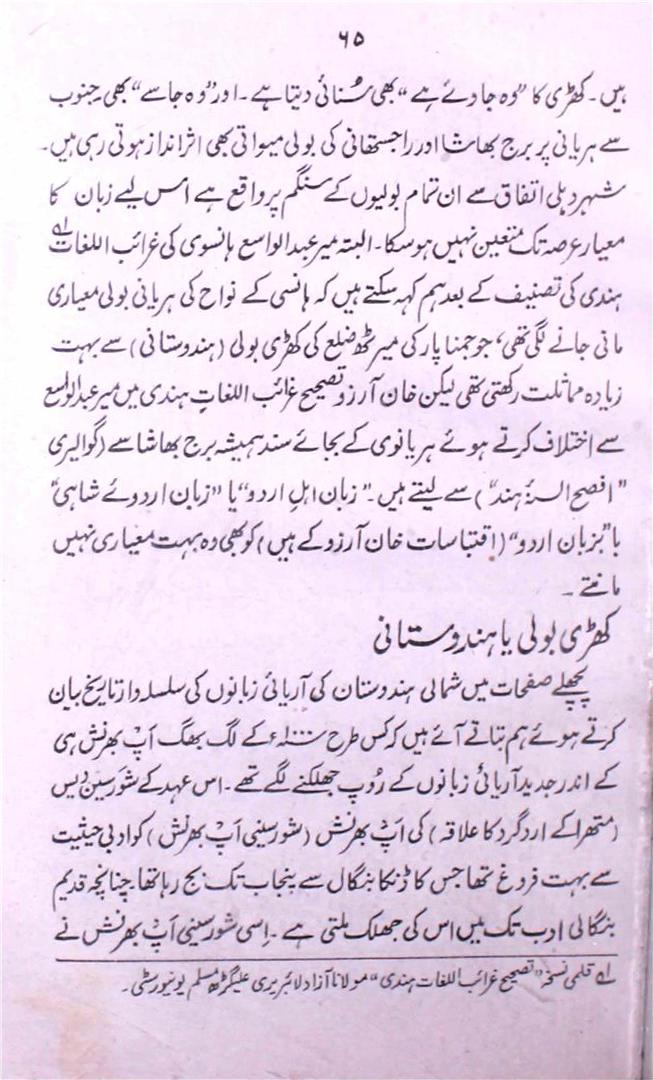 ۶۵
ہیں۔ کھڑی کا "وہ جاوئے ہے" بھی سنائی دیتا ہے۔ اور "وہ جاسے" بھی۔ جنوب
سے ہریانی پر برج بھاشا اور راجستھانی کی بولی میواتی بھی اثر انداز ہوتی رہی ہیں۔
شہر دہلی اتفاق سے ان تمام بولیوں کے سنگم پر واقع ہے اس لیے زبان کا
معیار عرصہ تک متعین نہیں ہو سکا۔ البتہ میر عبدالواسع ہانسوی کی غرائب اللغات لہ
ہندی کی تصنیف کے بعد ہم کہہ سکتے ہیں کہ ہانسی کے نواح کی ہریانی بولی معیاری
مانی جانے لگی تھی، جو جمنا پار کی میرٹھ ضلع کی کھڑی بولی (ہندوستانی) سے بہت
زیادہ مماثلت رکھتی تھی لیکن خان آرزو تصحیح غرائب اللغاتِ ہندی میں میر عبدالواسع
سے اختلاف کرتے ہوئے ہریانوی کے بجائے سند ہمیشہ برج بھاشا سے (گوالیری
"افصح السنۂ ہند") سے لیتے ہیں۔ "زبان اہلِ اردو" یا "زبان اردوئے شاہی"
با "بزبان اردو" (اقتباسات خان آرزو کے ہیں) کو بھی وہ بہت معیاری نہیں
مانتے۔
کھڑی بولی یا ہندوستانی
پچھلے صفحات میں شمالی ہندوستان کی آریائی زبانوں کی سلسلہ وار تاریخ بیان
کرتے ہوئے ہم بتاتے آئے ہیں کہ کس طرح ۱۰۰۰ء کے لگ بھگ اَپ بھرنش ہی
کے اندر جدید آریائی زبانوں کے رُوپ جھلکنے لگے تھے۔ اس عہد کے شورسین دیس
(متھرا کے اردگرد کا علاقہ) کی اَپ بھرنش (شورسینی اَپ بھرنش) کو ادبی حیثیت
سے بہت فروغ تھا جس کا ڈنکا بنگال سے پنجاب تک بج رہا تھا۔ چنانچہ قدیم
بنگالی ادب تک میں اس کی جھلک ملتی ہے۔ اِسی شورسینی اَپ بھرنش نے
لہ قلمی نسخہ "تصحیح غرائب اللغات ہندی" مولانا آزاد لائبریری علیگڑھ مسلم یونیورسٹی۔